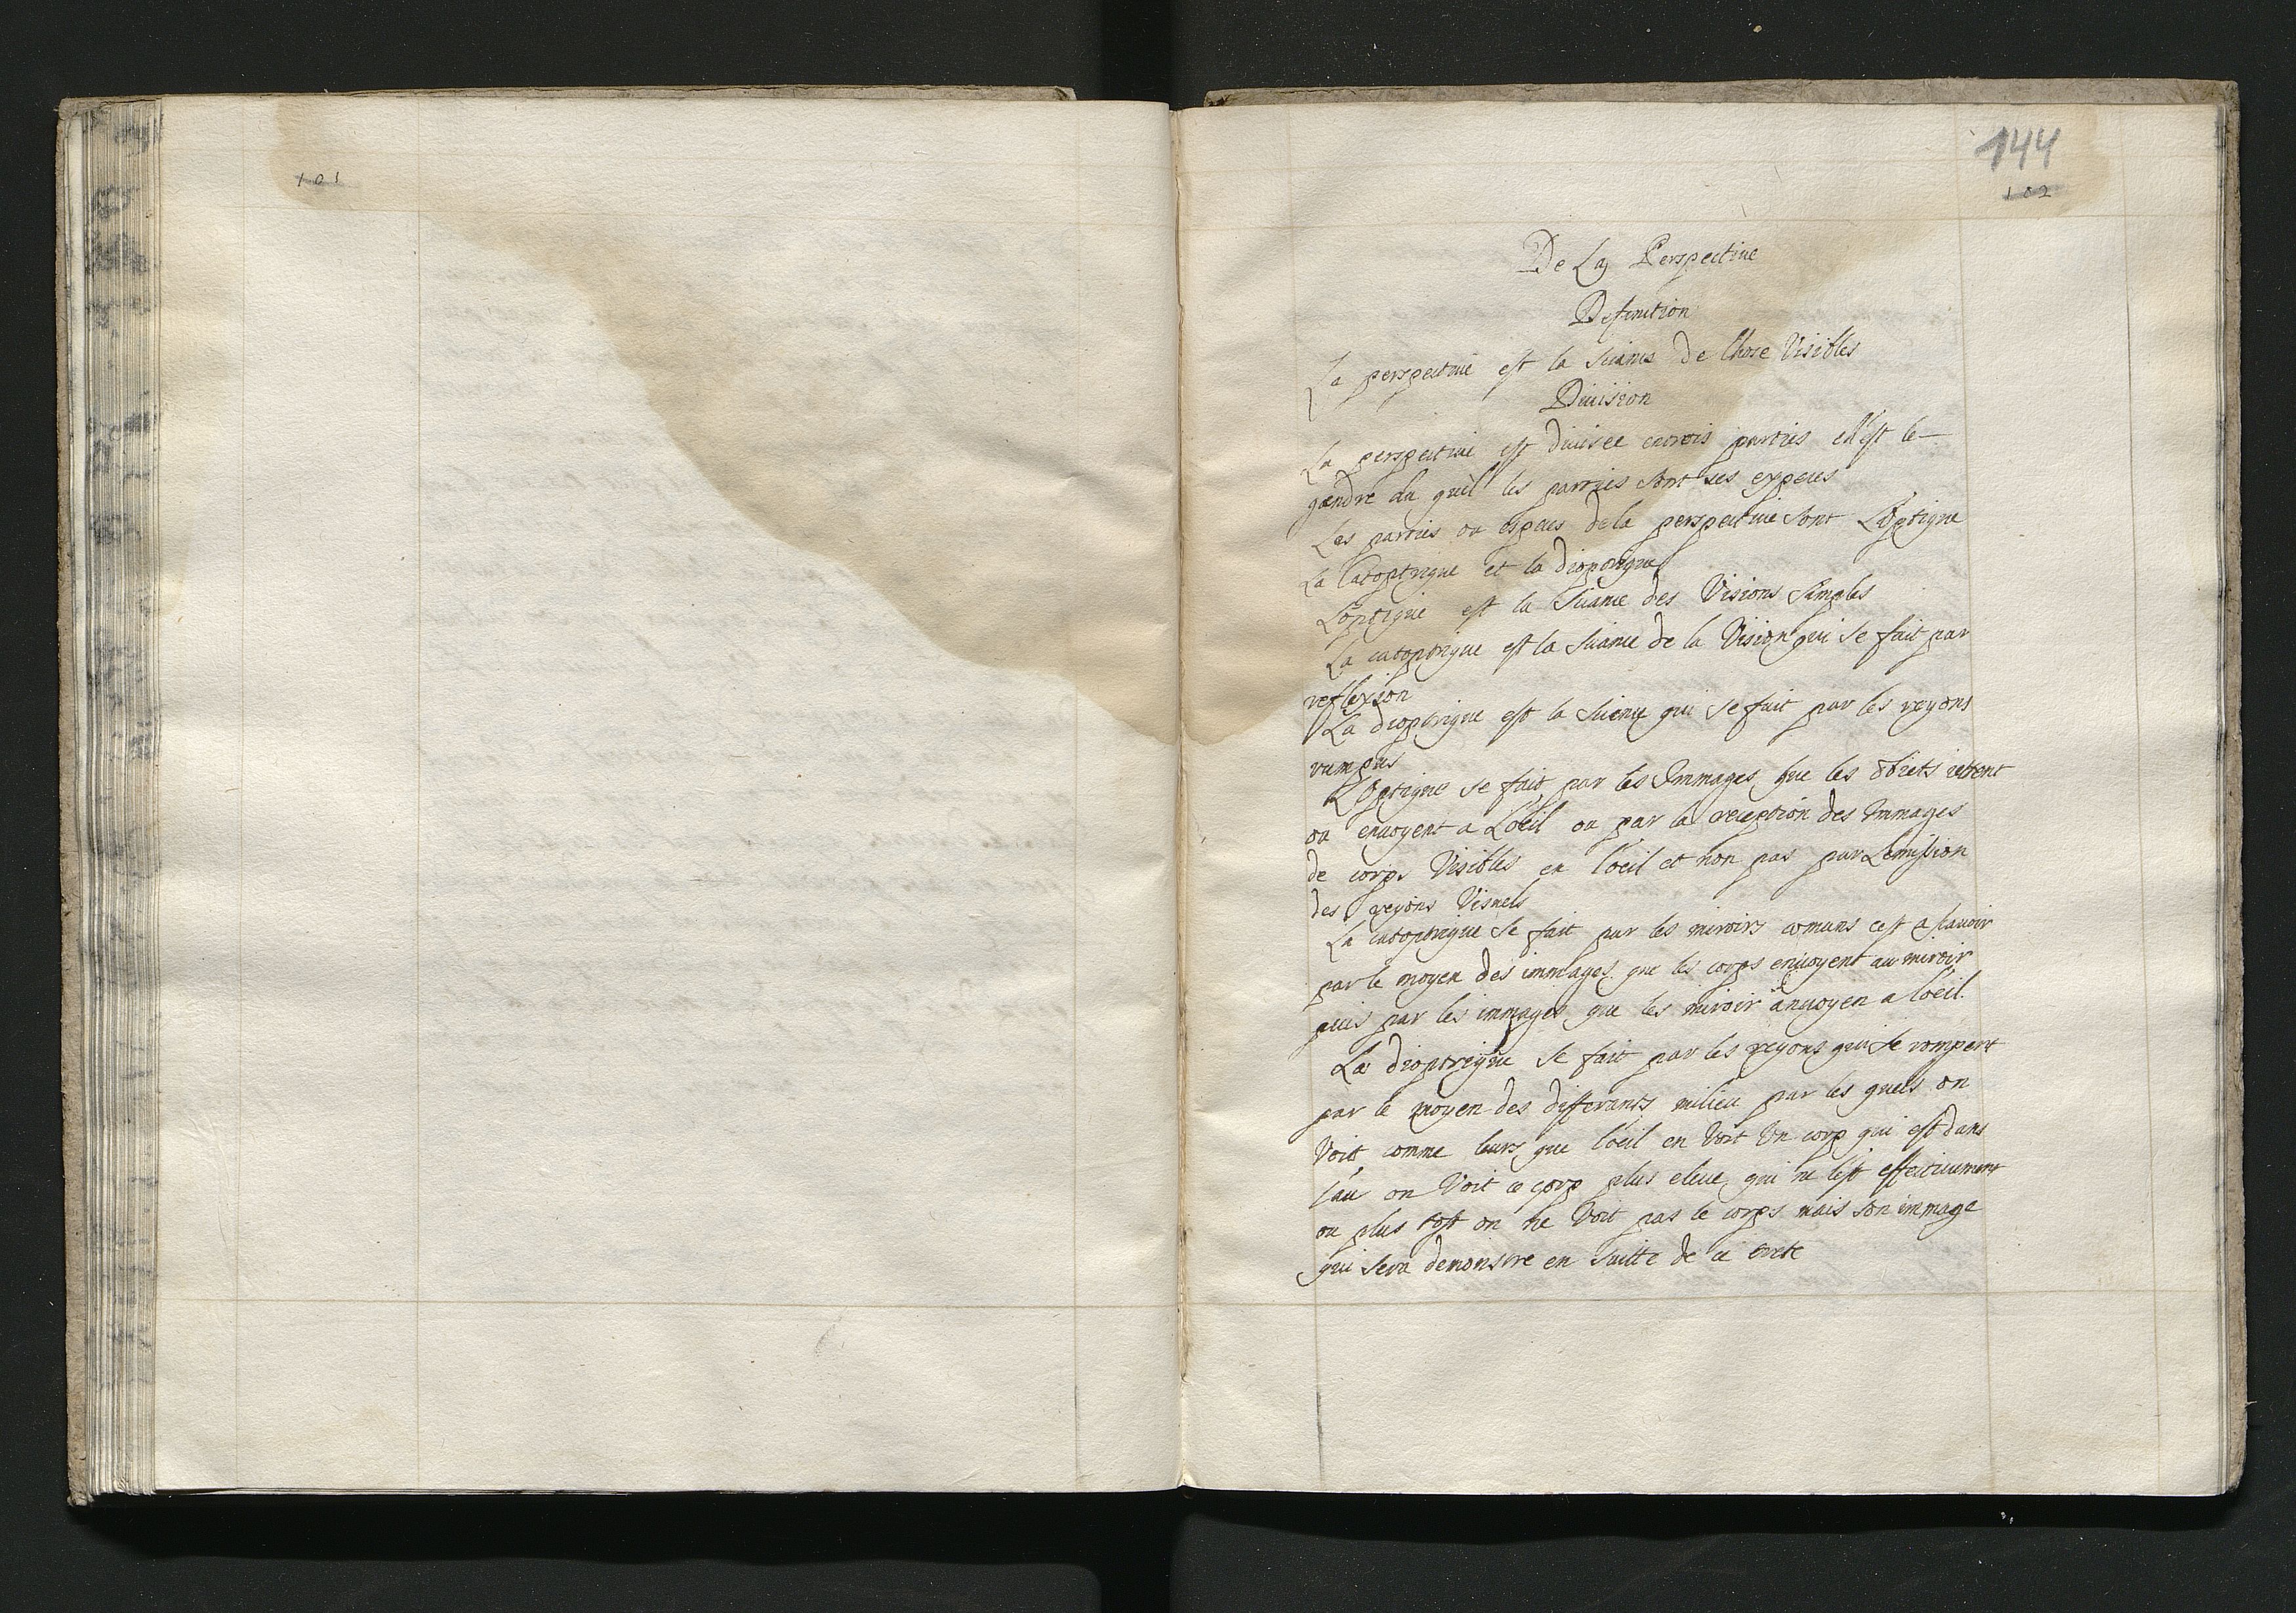 101
144
102
De La Perspectiue
Definition
La perspectiue est la sciance de chose Visibles
Diuision
La perspectiue est diuisee entrois parties ell est le
gendre du quel les parties sont ses expeces
Les parties ou especes de la perspectiue sont L'optique
La Catoptrique et la dioptrique
L'optique est la sciance des Visions simples
La catoptrique est la sciance de la Vision qui se fait par
reflexion
La dioptrique est la science qui se fait par les reyons
rumpus
L'optique se fait par les Immages que les obiets iettent
ou enuoyent a L'oeil ou par la reception des Immages
de corps Visibles en l'oeil et non pas par L'emission
des reyons Visuels
La catoptrique se fait par les miroirs comuns cest a scauoir
par le moyen des immages que les corps enuoyent au miroir
puis par les immages que les miroir anuoyen a l'oeil.
La dioptrique se fait par les reyons qui se rompent
par le moyen des differants milieu par les quels on
Voit comme leurs que l'oeil en Voit Un corp qui est dans
l'au on Voit ce corp plus eleue qui ne l'est effectiuement
ou plus tost on ne Voit pas le corps mais son immage
qui sera demonstre en suitte de ce